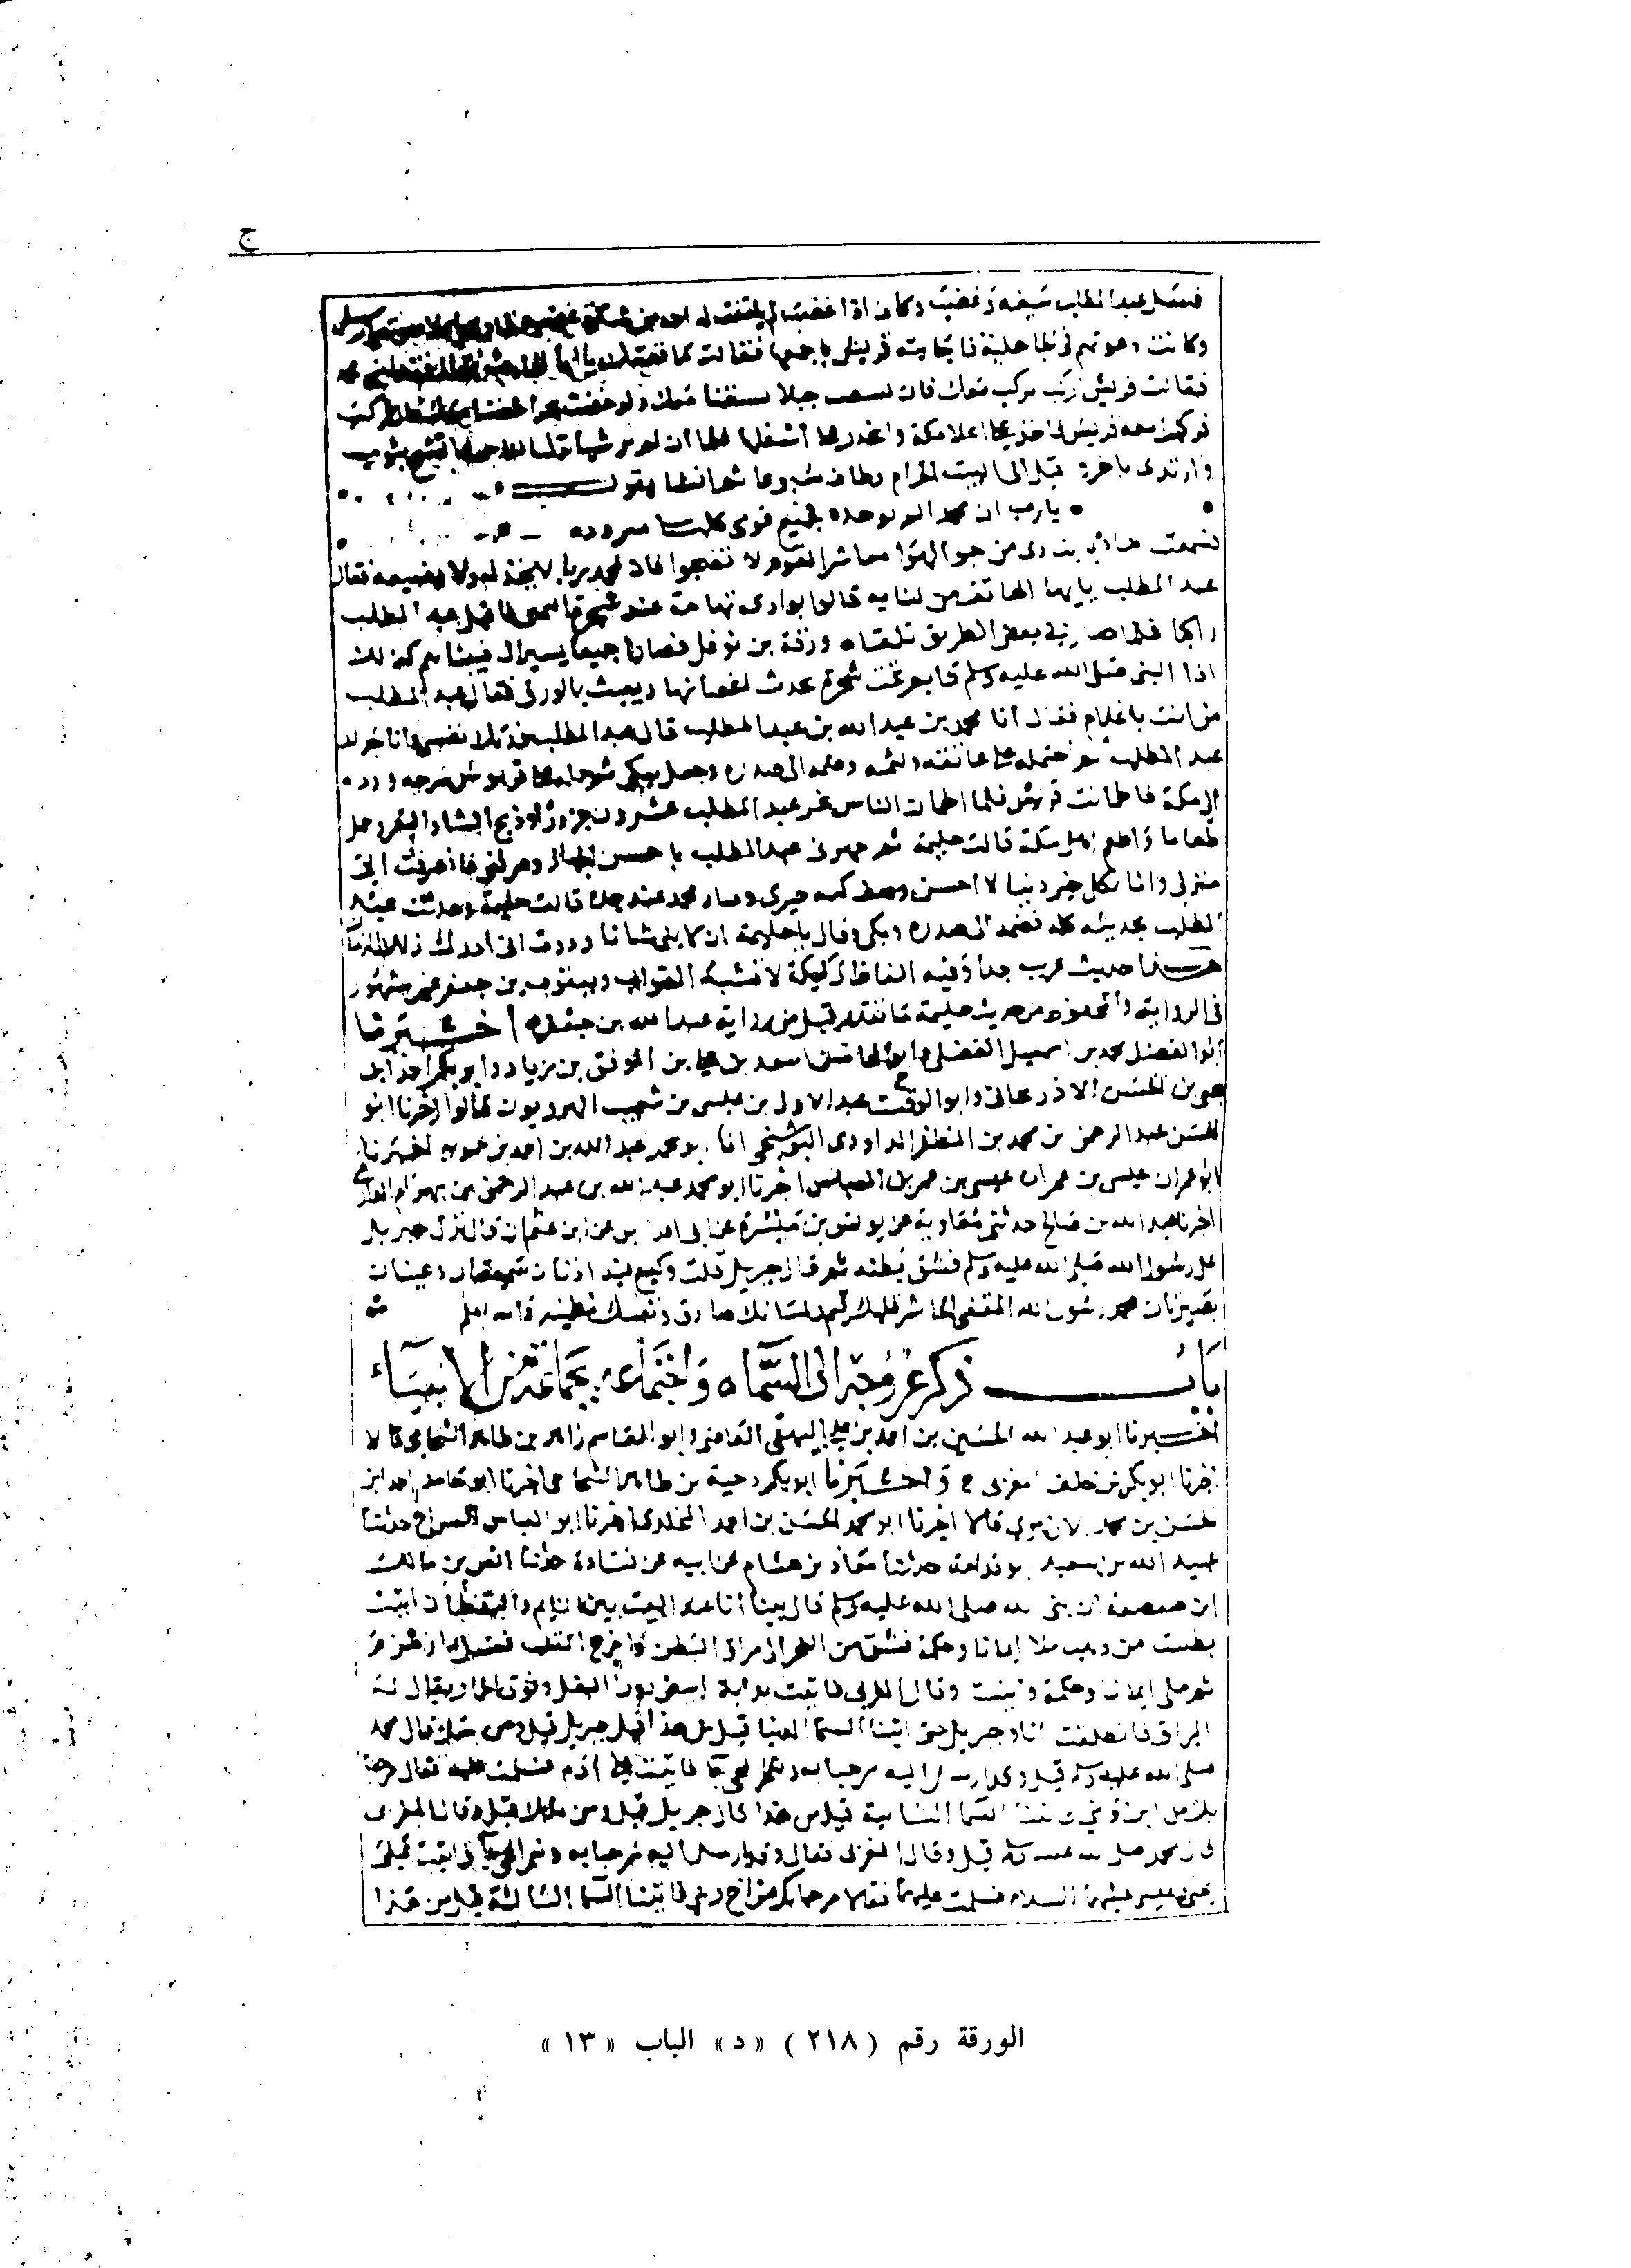 ج
فسل عبد المطلب سيفه وغضب وكان اذا غضب لم يلتفت له احد من شدة غضبه
وكانت دعوتهم في الجاهلية فاجابته قريش باجمعها فقالت ما قصتك يا ابا
فقالت قريش اركب نركب معك فان تسنمت جبلا تسنمنا معك ولو خضت بحرا خضنا فركب
فركبت معه قريش فاخذ على اعلا مكة وانحدر على اسفلها فلما ان لم ير شيا ترك الناس واتشح بثوب
وارتدى باخر واقبل الى البيت الحرام وطاف سبوعا ثم انشا يقول
يا رب ان محمدا لم يوجد فجميع قومي كلهم متردد
فسمعت مناديا ينادي من جو الهوا معاشر القوم لا تضجوا فان لمحمد ربا لا يخذله ولا يضيعه فقال
عبد المطلب يايها الهاتف من لنا به قالوا بوادي تهامة عند شجرة اليمنى فاقبل عبد المطلب
راكبا فلما صار في بعض الطريق تلقاه ورقة بن نوفل فصارا جميعا يسيران فبيناهم كذلك
اذا النبي صلى الله عليه وسلم قايم تحت شجرة يجذب اغصانها ويعبث بالورق فقال عبد المطلب
من انت يا غلام فقال انا محمد بن عبد الله بن عبد المطلب قال عبد المطلب فدتك نفسي وانا جدك
عبد المطلب ثم احتمله على عاتقه ولثمه وضمه الى صدره وجعل يبكي ثم حمله على قربوس سرجه ورده
الى مكة فاطمانت قريش فلما اطمان الناس نحر عبد المطلب عشرين جزورا وذبح الشاء والبقر وعمل
طعاما واطعم اهل مكة قالت حليمة ثم جهزني عبد المطلب باحسن الجهاز وصرفني فانصرفت الى
منزلي وانا بكل خير دنيا لا احسن وصف كنه خيري وصار محمد عند جده قالت حليمة وحدثت عبد
المطلب بحديثه كله فضمه الى صدره وبكى وقال يا حليمة ان لابني شانا وددت اني ادرك ذلك الزمان
هذا حديث غريب جدا وفيه الفاظ ركيكة لا تشبه الصواب ويعقوب بن جعفر غير مشهور
في الرواية والمحفوظ من حديث حليمة ما تقدم قبل من رواية عبد الله بن جعفر اخبرنا
ابو الفضل محمد بن اسمعيل الفضيلي وابو المحاسن اسعد بن علي بن الموفق بن زياد وابو بكر احمد بن
يحيى بن الحسن الاذرنجاني وابو الوقت عبد الاول بن عيسى بن شعيب الهرويون قالوا اخبرنا ابو
الحسن عبد الرحمن بن محمد بن المظفر الداودي البوشنجي انا ابو محمد عبد الله بن احمد بن حمويه اخبرنا
ابو عمران عيسى بن عمر بن العباس اخبرنا ابو محمد عبد الله بن عبد الرحمن بن بهرام الدارمي
اخبرنا عبد الله بن صالح حدثني معاوية عن يونس بن ميسرة عن ابي ادريس عن ابن غنم قال نزل جبريل
على رسول الله صلى الله عليه وسلم فشق بطنه ثم قال جبريل قلب وكيع فيه اذنان سميعتان وعينان
بصيرتان محمد رسول الله المقفي الحاشر خلقك قيم ولسانك صادق ونفسك مطمئنة والله اعلم
باب ذكر عروجه الى السماء واجتماعه بجماعة من الانبياء
اخبرنا ابو عبد الله الحسين بن احمد بن علي البيهقي القاضي وابو القاسم زاهر بن طاهر الشحامي قالا
اخبرنا ابو بكر بن خلف المغربي ح واخبرنا ابو بكر وجيه بن طاهر الشحامي اخبرنا ابو حامد احمد بن
الحسن بن محمد الازهري قالا اخبرنا ابو محمد الحسن بن احمد المخلدي اخبرنا ابو العباس السراج حدثنا
عبيد الله بن سعيد ابو قدامة حدثنا معاذ بن هشام عن ابيه عن قتادة حدثنا انس بن مالك
ابن صعصعة ان نبي الله صلى الله عليه وسلم قال بينا انا عند البيت بين النايم واليقظان اتيت
بطست من ذهب ملا ايمانا وحكمة فشق من النحر الى مراق البطن واخرج القلب فغسل بماء زمزم
ثم ملي ايمانا وحكمة وقال المغربي فاتيت بدابة ابيض دون البغل وفوق الحمار يقال له
البراق فانطلقت انا وجبريل حتى اتينا السما الدنيا قيل من هذا قيل جبريل قيل ومن معك قال محمد
صلى الله عليه وسلم قيل وقد ارسل اليه مرحبا به ونعم المجي جا فاتيت على ادم فسلمت عليه فقال مرحبا
بك من ابن ونبي فاتينا السما الثانية قيل من هذا قال جبريل قيل ومن معك وقال المغربي
قال محمد صلى الله عليه وسلم قيل وقال المغربي فقال وقد ارسل اليه مرحبا به ونعم المجي جا فاتيت على
يحيى وعيسى عليهما السلام فسلمت عليهما فقالا مرحبا بك من اخ ونبي فاتينا السما الثالثة قيل من هذا
الورقة رقم (٢١٨) «د» الباب «١٣»